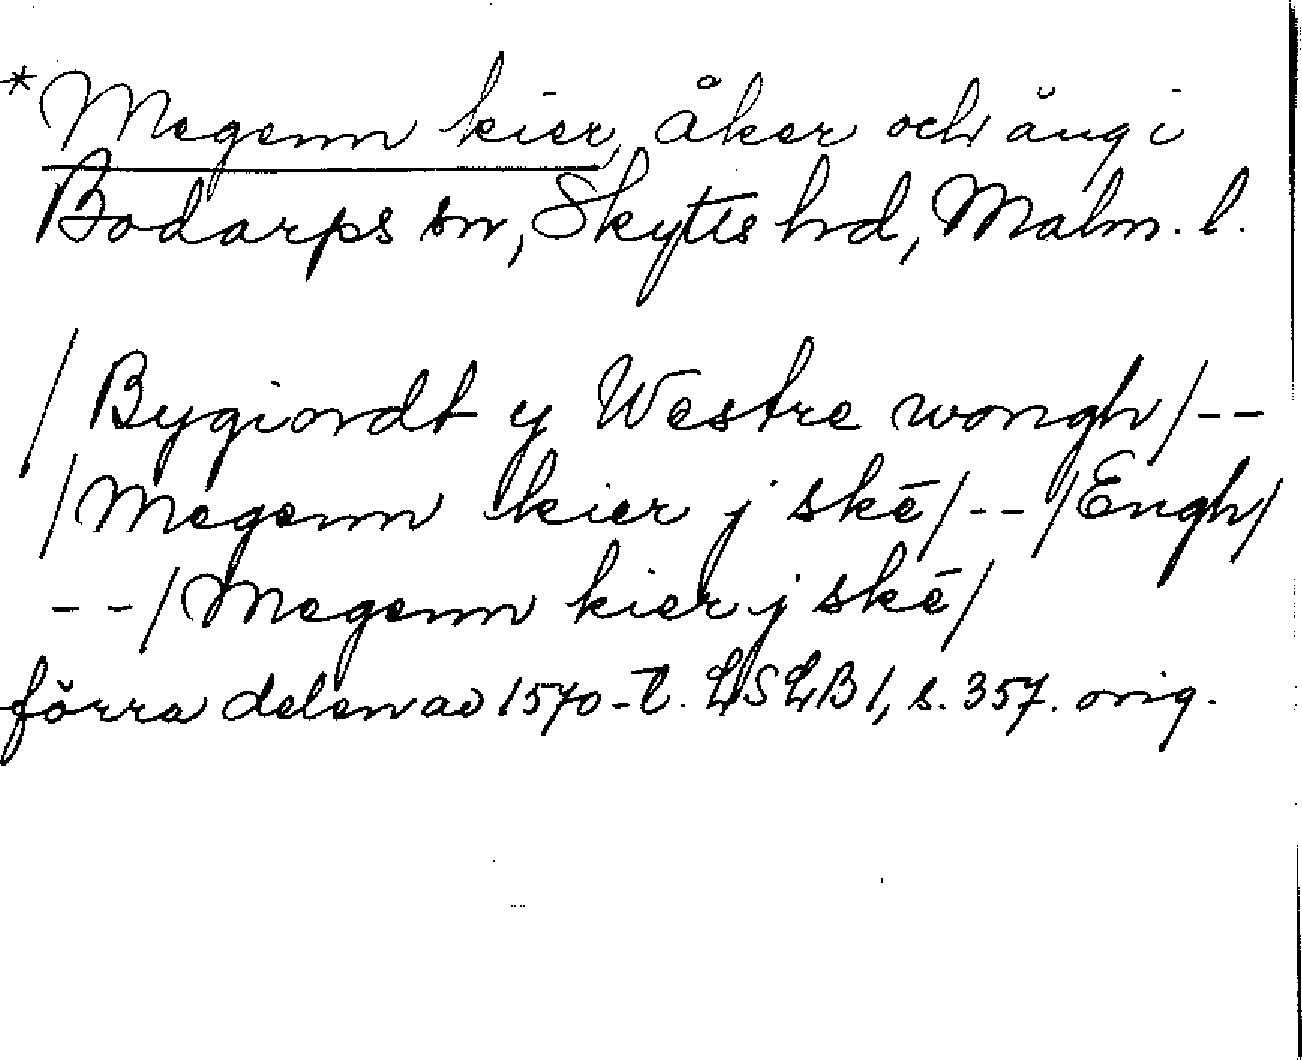 *Megenn kier, åker och äng i
Bodarps sn, Skytts hd, Malm. l.
/Bygiordt y Westre wongh/--
/Megenn kier j skē/--/Engh/
--/Megenn kier j skē/
förra delen av 1570-t. LSLB 1, s. 357. orig.